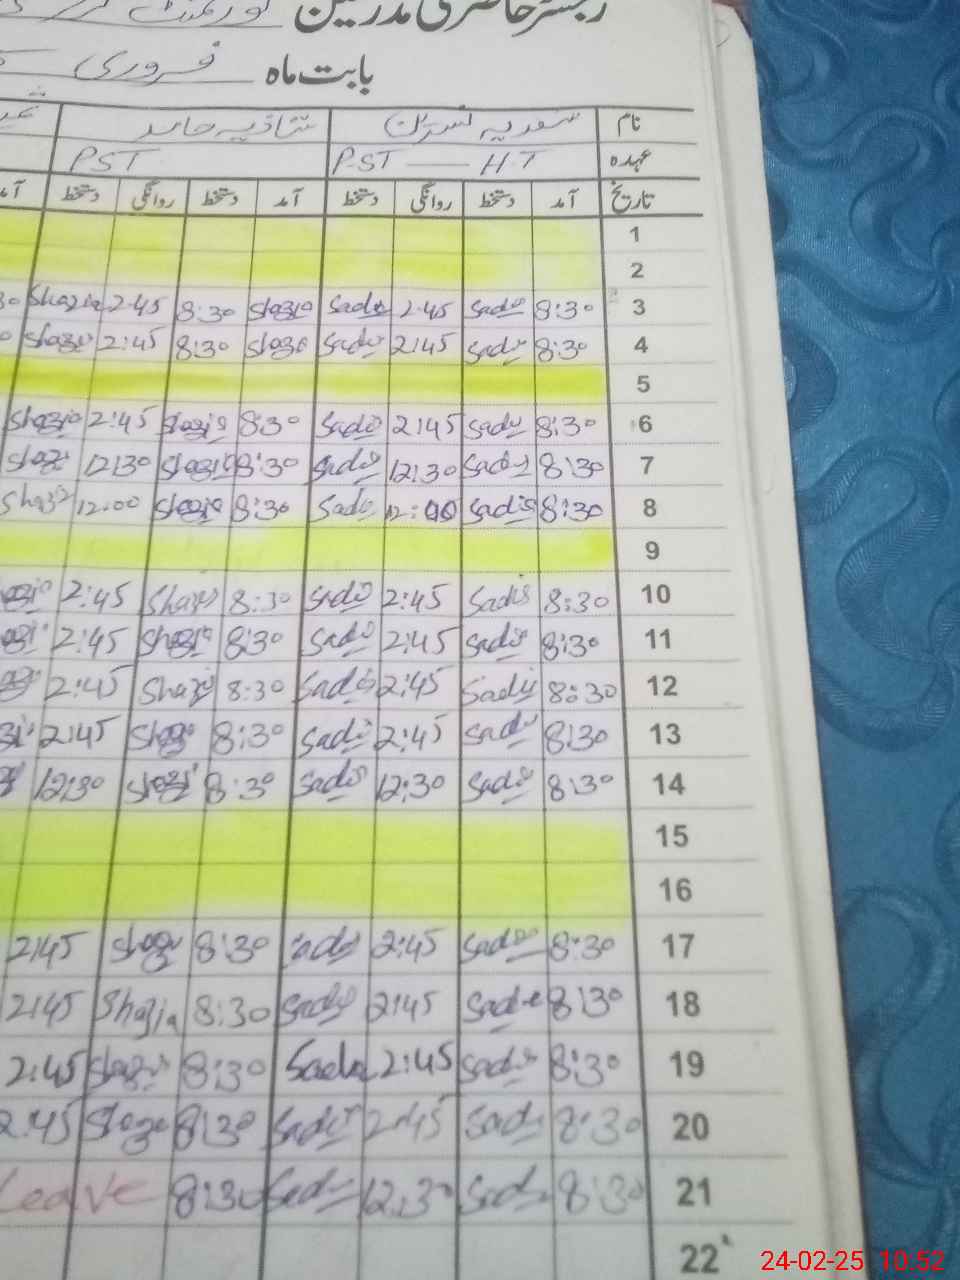 رجسٹر حاضری مدرسین گورنمنٹ
بابت ماہ فروری
نام سعدیہ نسرین شازیہ حامد
عہدہ PST — HT PST
تاریخ آمد دستخط روانگی دستخط آمد دستخط روانگی دستخط آمد
1
2
3 8:30 Sadi 2:45 Sadi Shazia 8:30 2:45 Shazia
4 8:30 Sadi 2:45 Sadi Shazi 8:30 2:45 Shazi
5
6 8:30 Sadi 2:45 Sadi 8:30 Shazia 2:45 Shazia
7 8:30 Sadi 12:30 Sadi 8:30 Shazia 12:30 Shazi
8 8:30 Sadia 12:00 Sadi 8:30 Shazia 12:00 Shazi
9
10 8:30 Sadia 2:45 Sadi 8:30 Shazi 2:45
11 8:30 Sadia 2:45 Sadi 8:30 Shazia 2:45
12 8:30 Sadi 2:45 Sadi 8:30 Shazi 2:45
13 8:30 Sadi 2:45 Sadi 8:30 Shazi 2:45
14 8:30 Sadi 12:30 Sadi 8:30 Shazi 12:30
15
16
17 8:30 Sadi 2:45 Sadi 8:30 Shazi 2:45
18 8:30 Sadi 2:45 Sadi 8:30 Shazia 2:45
19 8:30 Sadi 2:45 Sadia 8:30 Shazi 2:45
20 8:30 Sadi 2:45 Sadi 8:30 Shazi 2:45
21 8:30 Sadi 12:30 Sadi 8:30 Leave
22
24-02-25 10:52